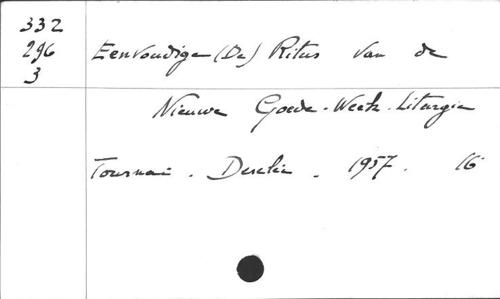 332
296
3
Eenvoudige (De) Ritus van de
Nieuwe Goede-Week-Liturgie
Tournai. Desclée. 1957. 16